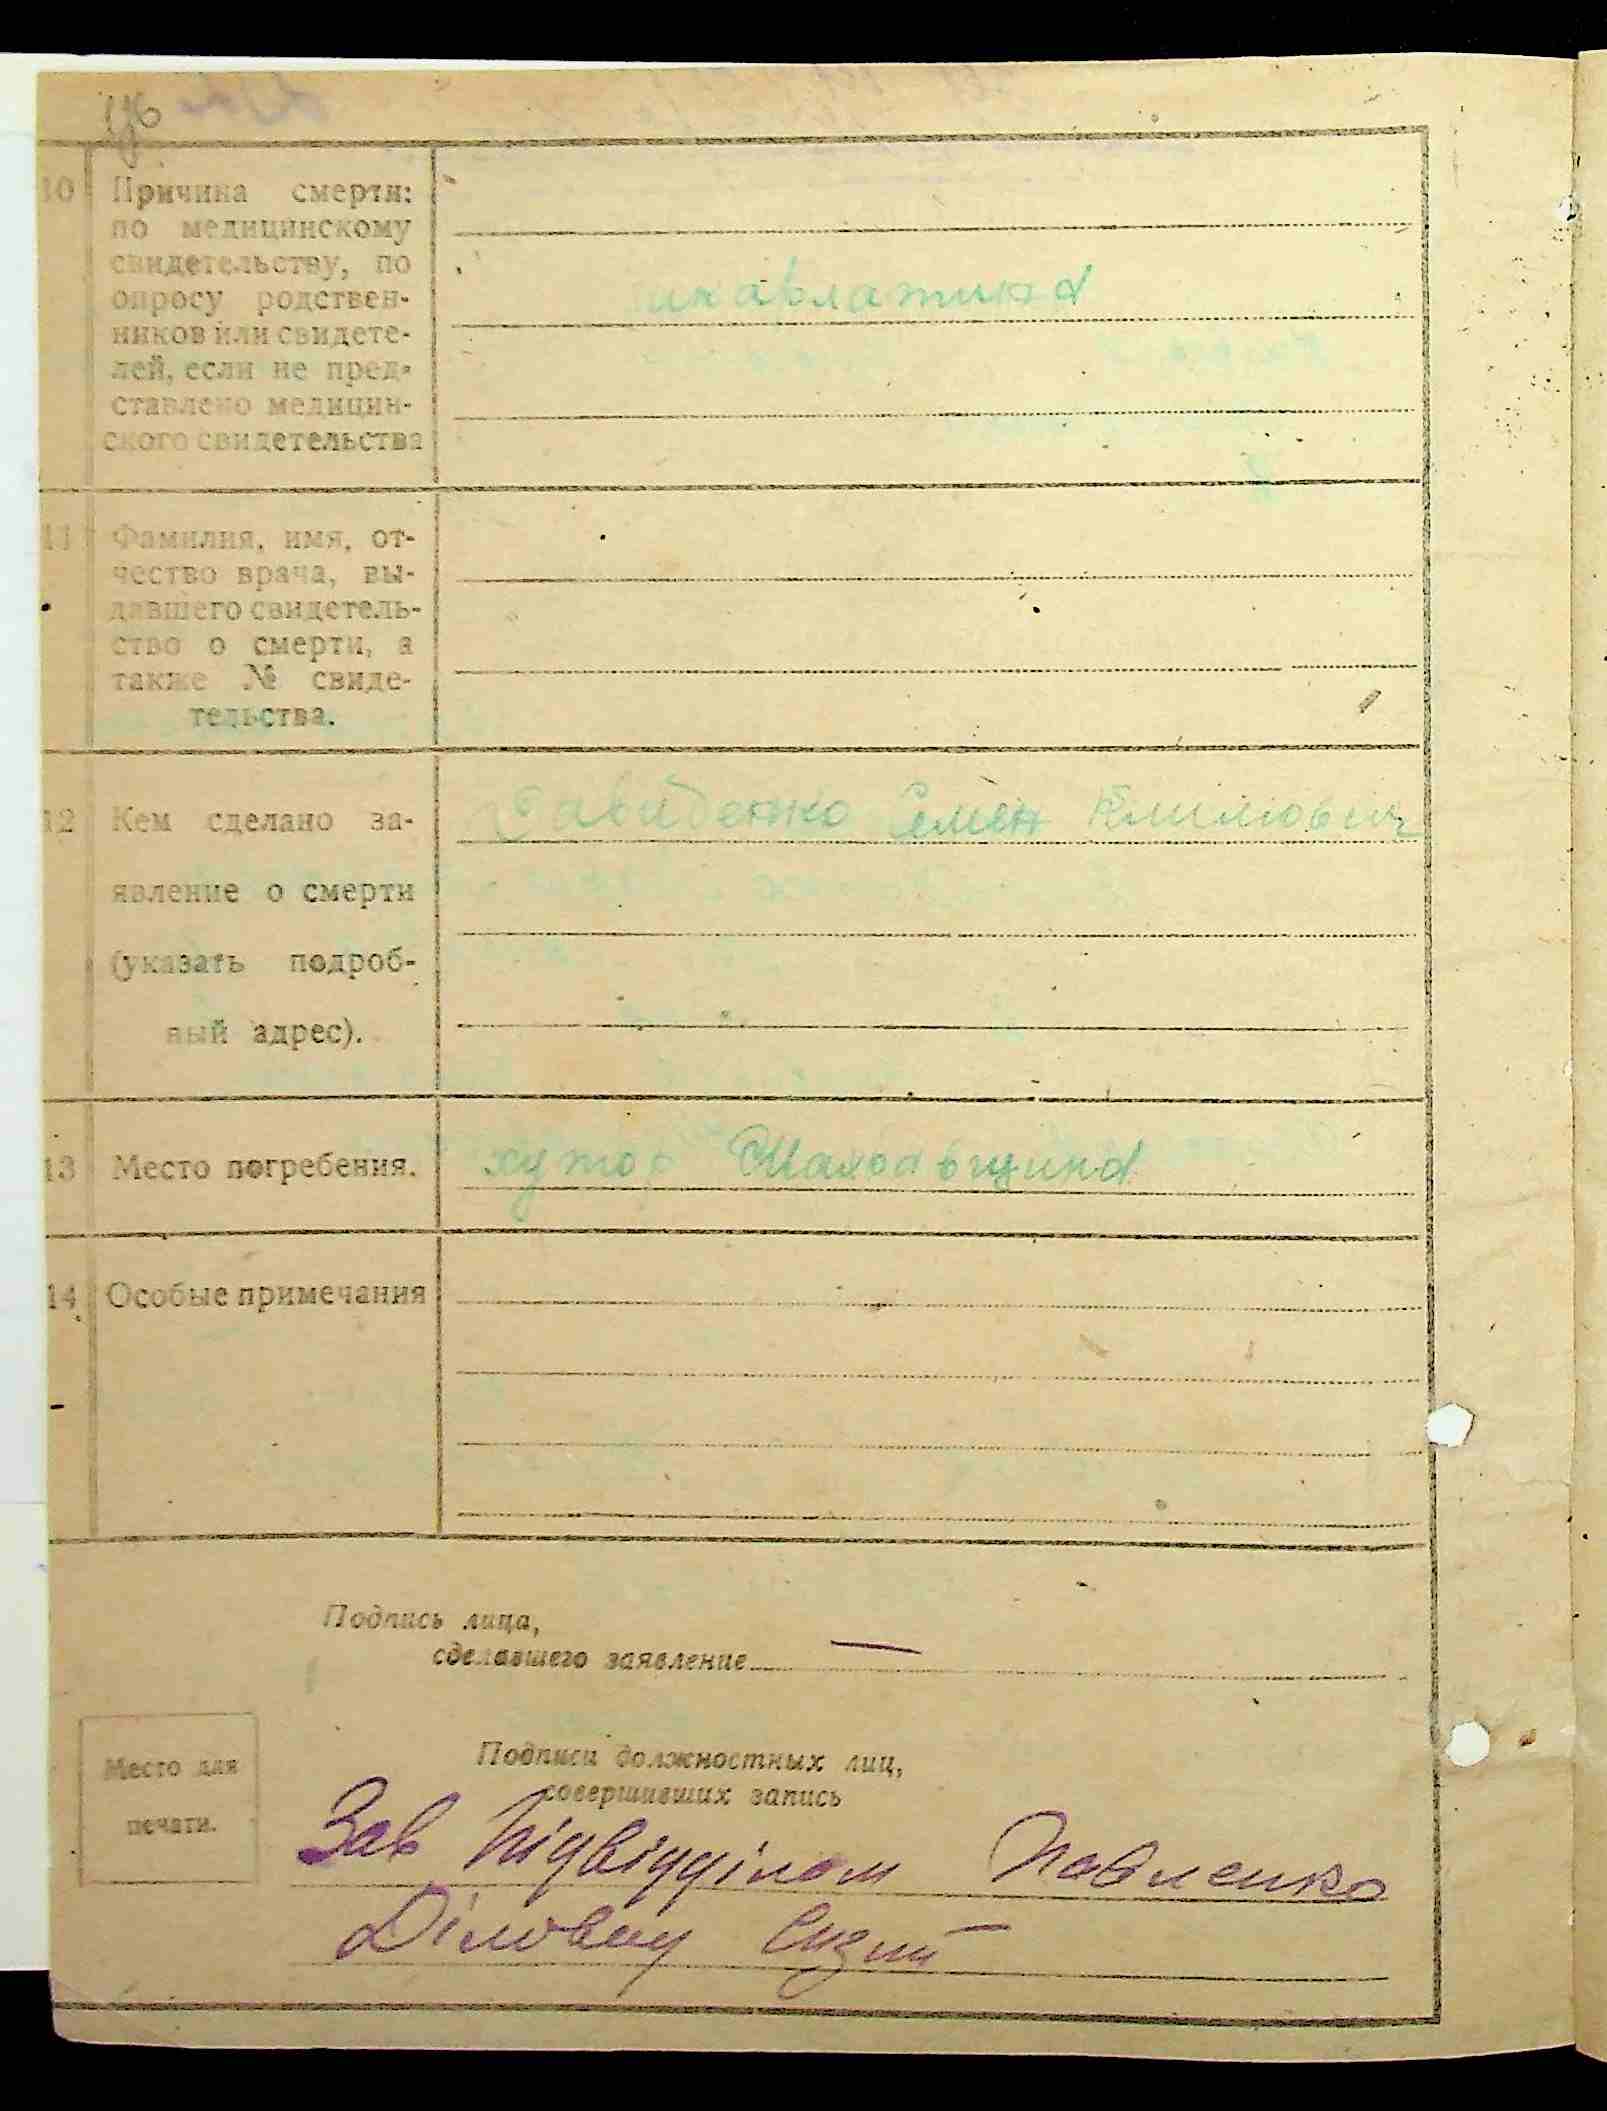 10 Причина смерти:
по медицинскому
свидетельству, по
опросу родствен-
ников или свидете-
лей, если не пред-
ставлено медицин-
ского свидетельства
11 Фамилия, имя, от-
чество врача, вы-
давшего свидетель-
ство о смерти, а
также № свиде-
тельства.
12 Кем сделано за- Давиденко Семен Климович
явление о смерти
(указать подроб-
ный адрес).
13 Место погребения. хутор
14 Особые примечания
Подпись лица,
сделавшего заявление —
Место для
печати.
Подписи должностных лиц,
совершивших запись
Зав Підвідділом Павленко
Діловод